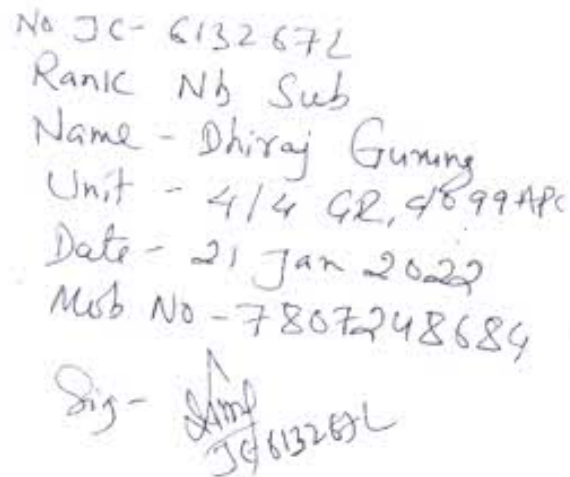 No JC- 613267L
Rank Nb Sub
Name - Dhiraj Gurung
Unit - 4/4 GR, c/o 99 APO
Date - 21 Jan 2022
Mob No - 7807248684
Sig-
JC 613267L